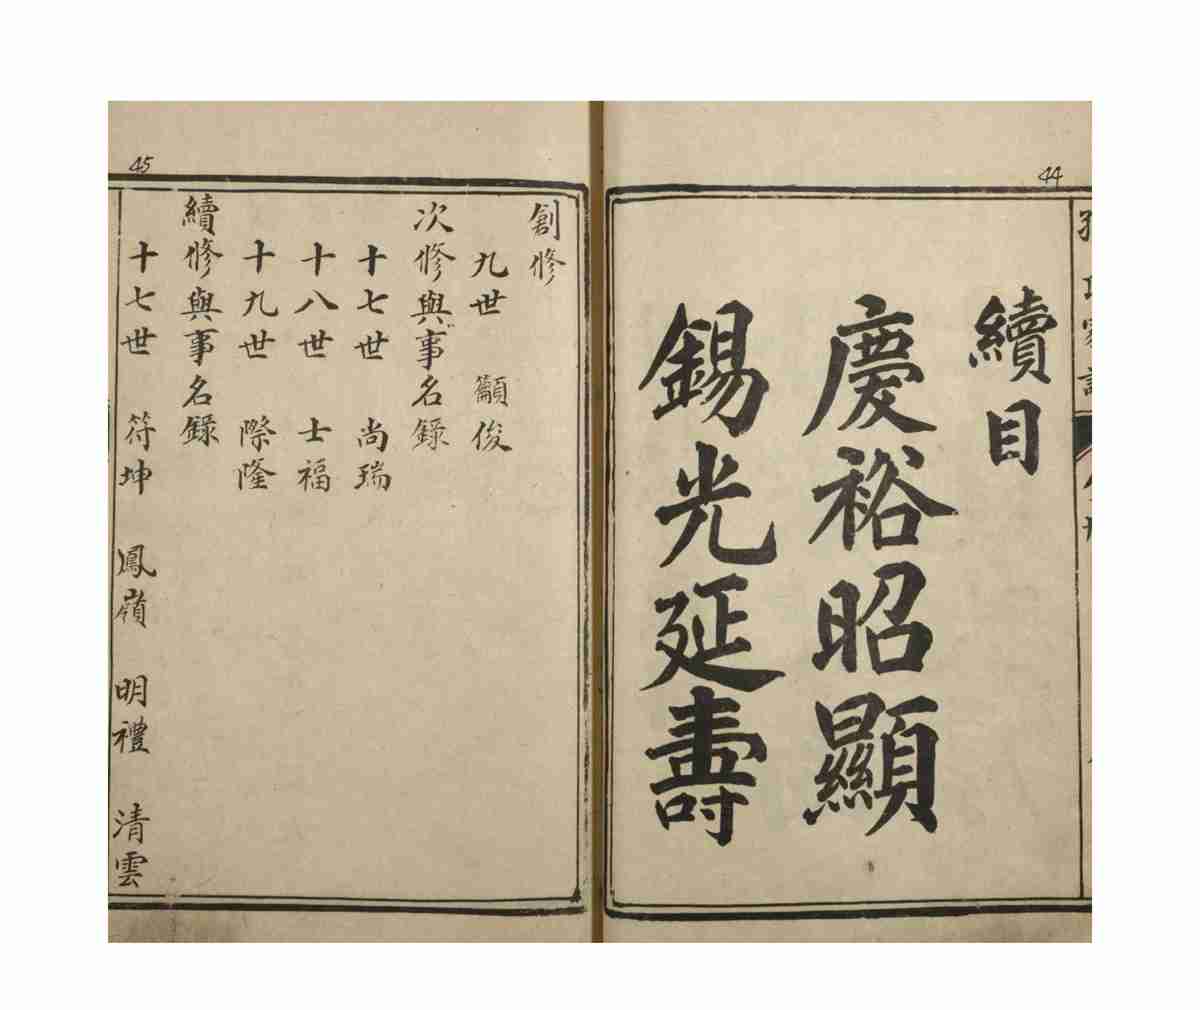 44
續目
慶裕昭顯
錫光延壽
45
創修
九世 籲俊
次修與事名錄
十七世 尚瑞
十八世 士福
十九世 際隆
續修與事名錄
十七世 符坤 鳳嶺 明禮 清雲